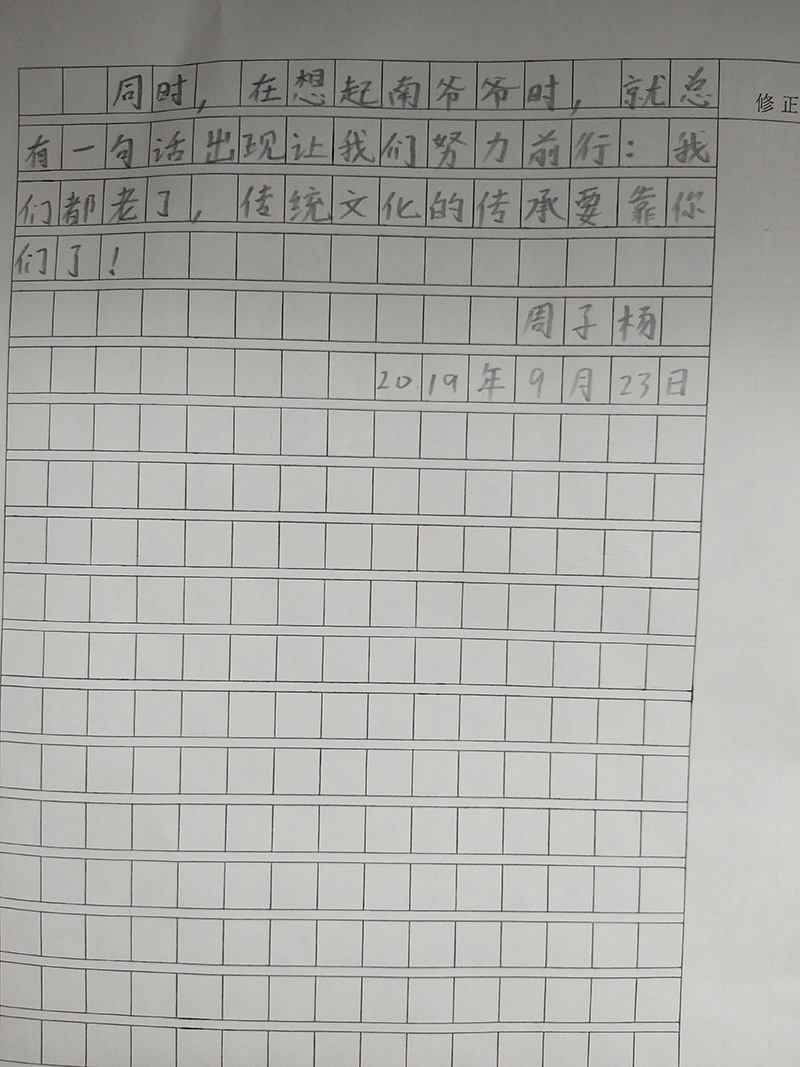 同时，在想起南爷爷时，就总
修正
有一句话出现让我们努力前行：我
们都老了，传统文化的传承要靠你
们了！
周子杨
2019年9月23日